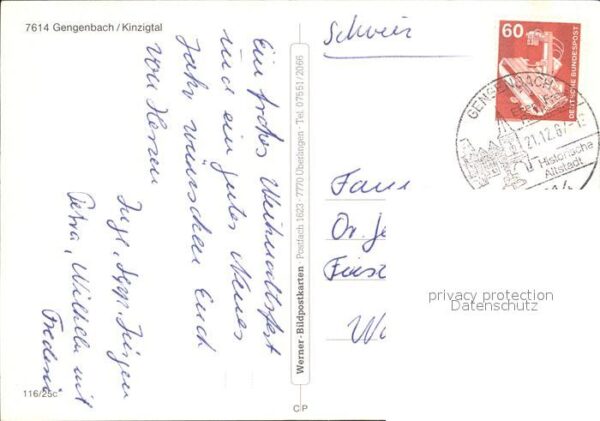 7614 Gengenbach / Kinzigtal
Ein frohes Weihnachtsfest
und ein gutes Neues
Jahr wünschen Euch
von Herzen
Inge, Jürgen
Petra, Wilhelm mit
Frederic
116/25c
Werner-Bildpostkarten · Postfach 1623 · 7770 Überlingen · Tel. 07551/2066
C P
Schweiz
60
DEUTSCHE BUNDESPOST
GENGENBACH
21.12.87
Historische
Altstadt
Fam
Dr. Je
Fürst
privacy protection
Datenschutz